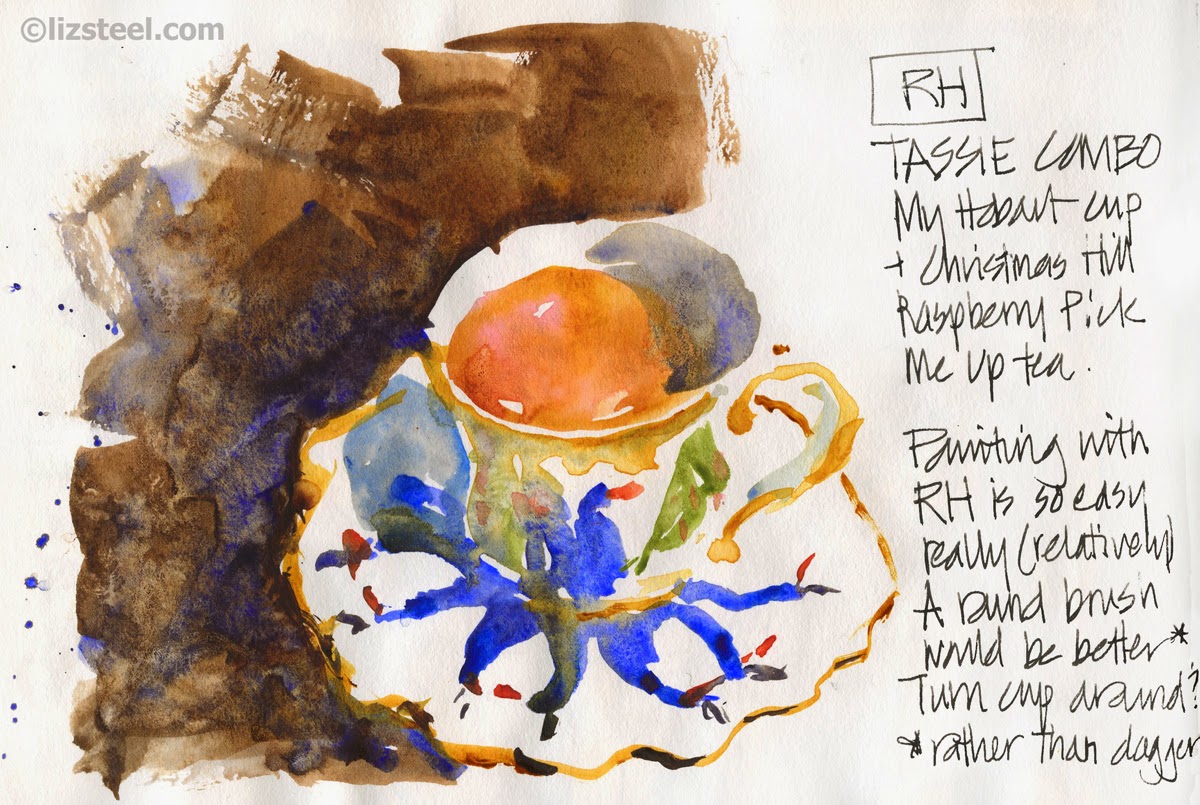 ©lizsteel.com
RH
TASSIE COMBO
My Hobart cup
+ Christmas Hill
Raspberry Pick
Me Up tea.
Painting with
RH is so easy
really (relatively)
A round brush
would be better*
Turn cup around?
* rather than dagger